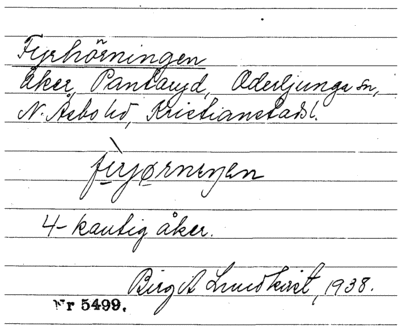 Fyrhörningen
åker, Pantaryd, Oderljunga sn,
N. Åsbo hd, Kristianstads l.
4-kantig åker.
Birgit Lundkvist, 1938.
Nr 5499.